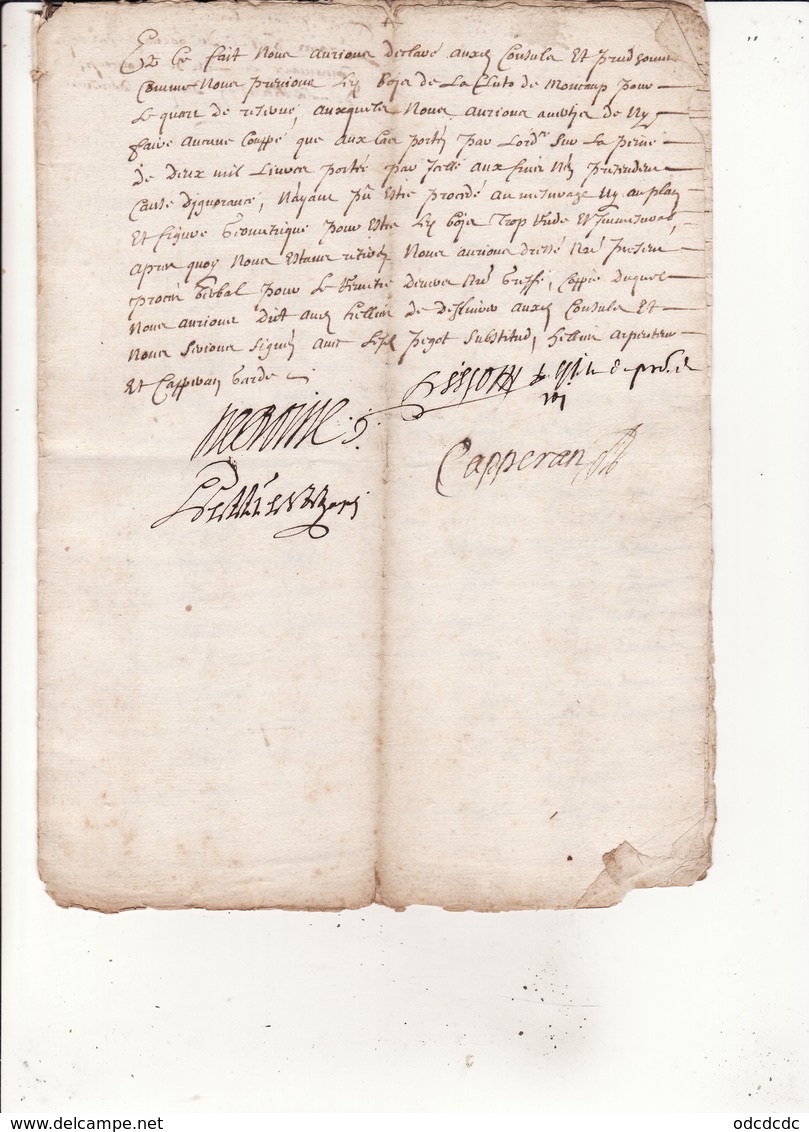 Et Ce fait Nous aurions declaré auxd Consuls Et prudhommes
Comme Nous prenions Led bois de La Cluto de Moncaup pour
Le quart de reserve, auxquels Nous aurions de Ny
faire aucune Couppe que aux Cas portés par Lord.ce Sur La peine
de deux mil Livres portée par Jcelle aux fins N'en pretendent
Cause dignorance, Nayant pû Estre procedé au mesurage Ny au plan
Et figure Geometrique pour Estre Led bois Trop Vide Et Jmmesurab,
apres quoy Nous Estant retirés Nous aurions dressé Nre present
procés Verbal pour Le remettre devers Nre Greffe, Coppie Duquel
Nous aurions dit aud hellien de delivrer auxd Consuls Et
Nous Serions Signés avec Led Sr pegot Substitud, hellien arpenteur
Et Capperan Garde
Capperan
odcdcdc